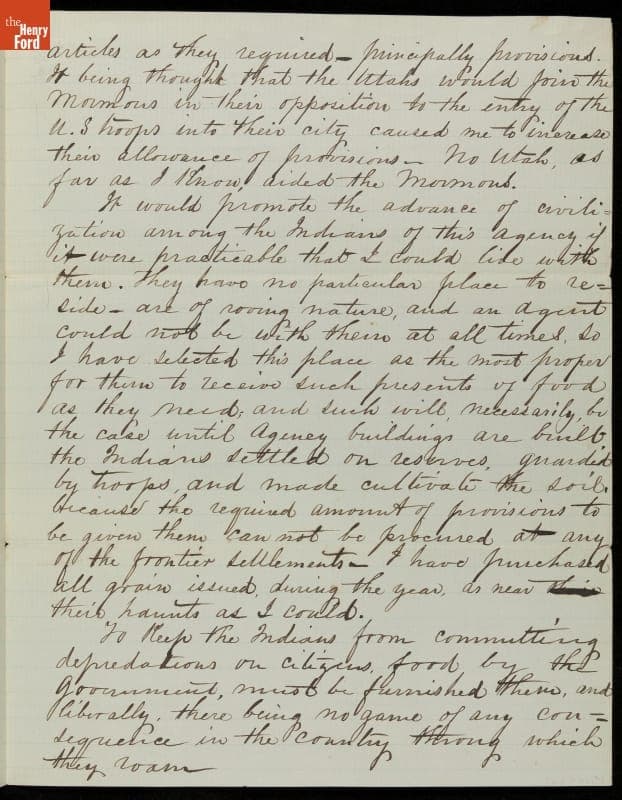 the
Henry
Ford
articles as they required – principally provisions.
It being thought that the Utahs would join the
Mormons in their opposition to the entry of the
U.S troops into their city caused me to increase
their allowance of provisions – No Utah, as
far as I know, aided the Mormons.
It would promote the advance of civili=
zation among the Indians of this agency if
it were practicable that I could live with
them. They have no particular place to re=
side – are of roving nature, and an agent
could not be with them at all times, so
I have selected this place as the most proper
for them to receive such presents of food
as they need; and such will, necessarily, be
the case until Agency buildings are built
the Indians settled on reserves, guarded
by troops, and made cultivate the soil.
because the required amount of provisions to
be given them can not be procured at any
of the frontier settlements – I have purchased
all grain issued, during the year, as near
their haunts as I could.
To keep the Indians from committing
depredations on citizens, food by the
Government, must be furnished them, and
liberally, there being no game of any con=
sequence in the country throug which
they roam